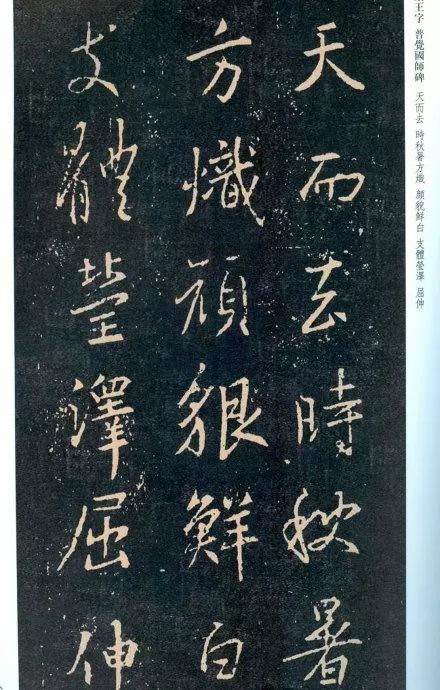 天而去時秋暑
方熾顔貌鮮白
支體瑩澤屈伸
王字 普覺國師碑 天而去 時秋暑方熾 顔貌鮮白 支體瑩澤 屈伸